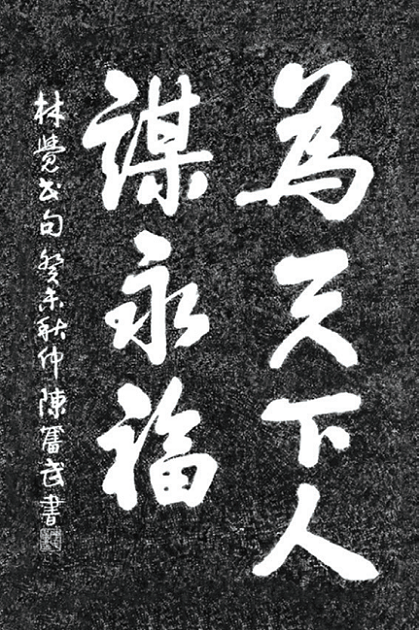 為天下人
謀永福
林覺民句 癸未秋仲 陳奮武書